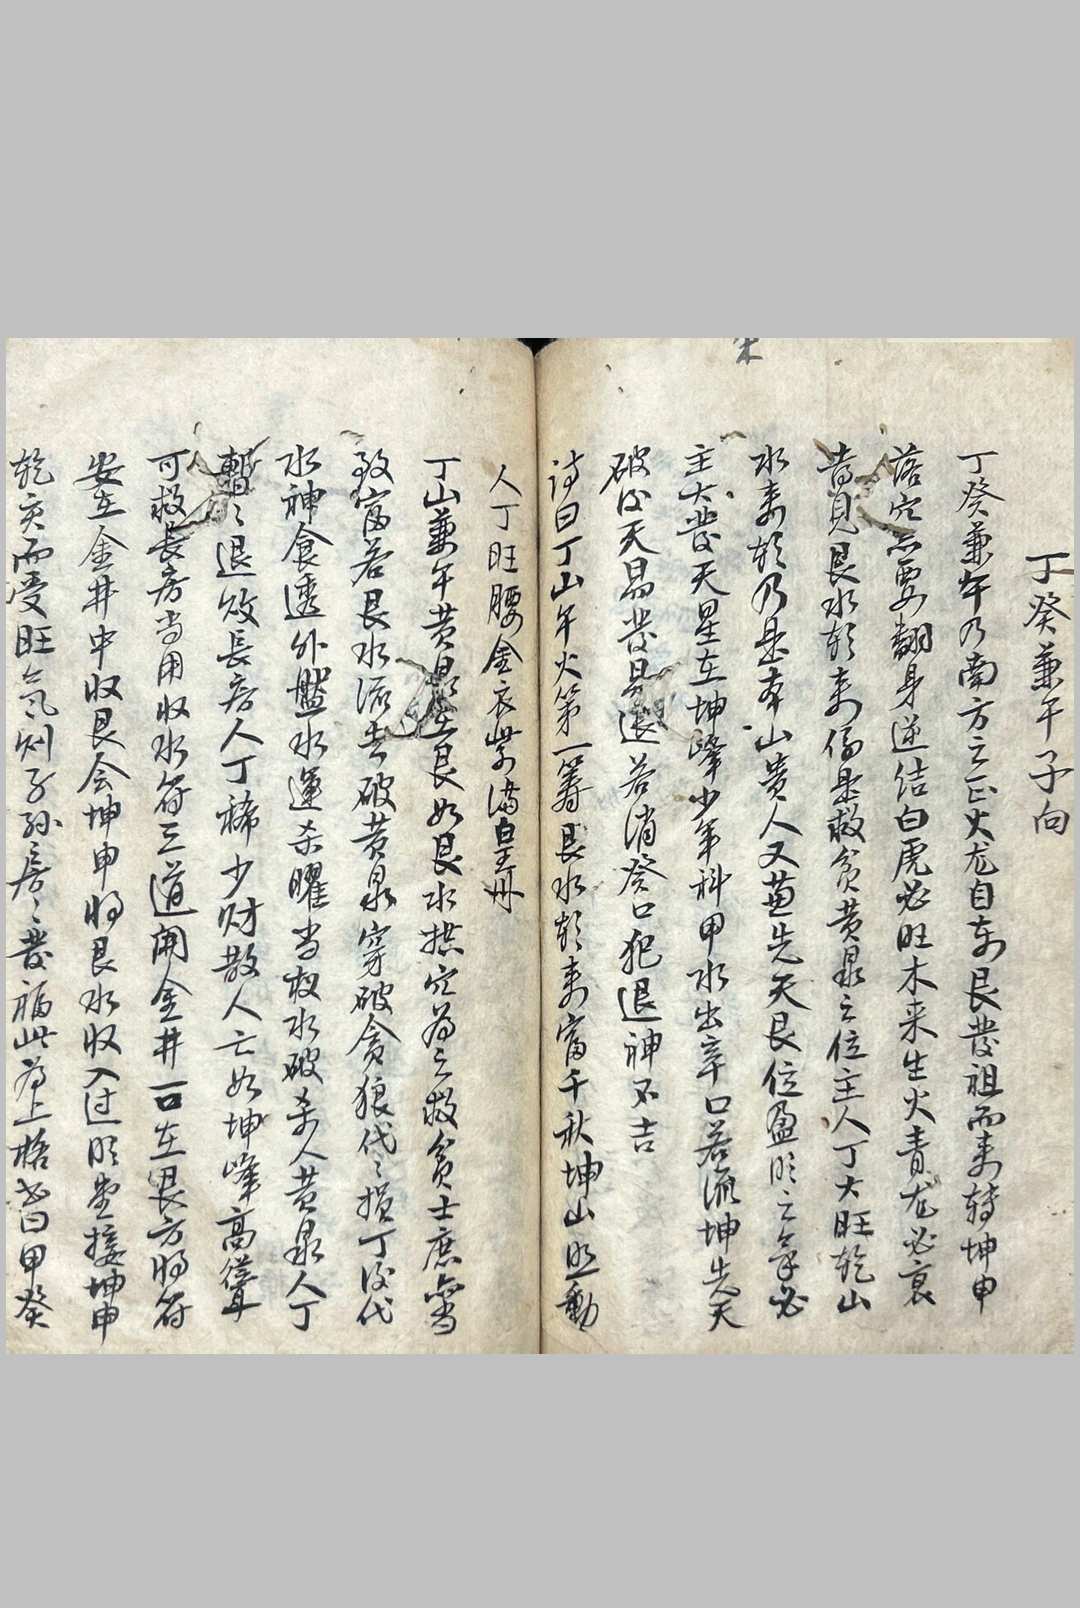 丁癸兼午子向
丁癸兼午乃南方之正火龙自东艮發祖而来轉坤申
落穴必要翻身逆结白虎必旺木来生火青龙必衰
若見艮水朝来偏是救貧黄泉之位主人丁大旺乾山
水来朝乃是本山贵人又兼先天艮位盈旺之氣必
主大發天星在坤峰少年科甲水出辛口若流坤先天
破后天易發易退若消癸口犯退神不吉
诗曰丁山午火第一筹艮水朝来富千秋坤山照動
人丁旺腰金衣紫满皇州
丁山兼午黄泉在艮如艮水拱穴為之救貧士庶當
致富若艮水流去破黄泉穿破贪狼代代損丁后代
水神食透外盤水運杀曜当权水破杀人黄泉人丁
暫退败長房人丁稀少财散人亡如坤峰高聳
可救長房当用收水符三道開金井一口在艮方将符
安在金井中收艮会坤申将艮水收入过明堂接坤申
乾亥而受旺气则子孙房房發福此為上格者曰甲癸